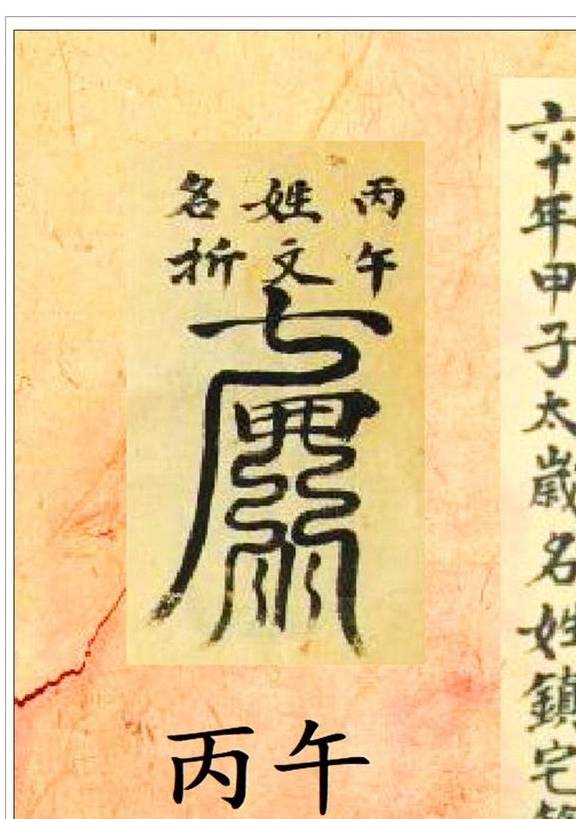 六十年甲子太歲名姓鎮宅
丙午
姓文
名折
丙午